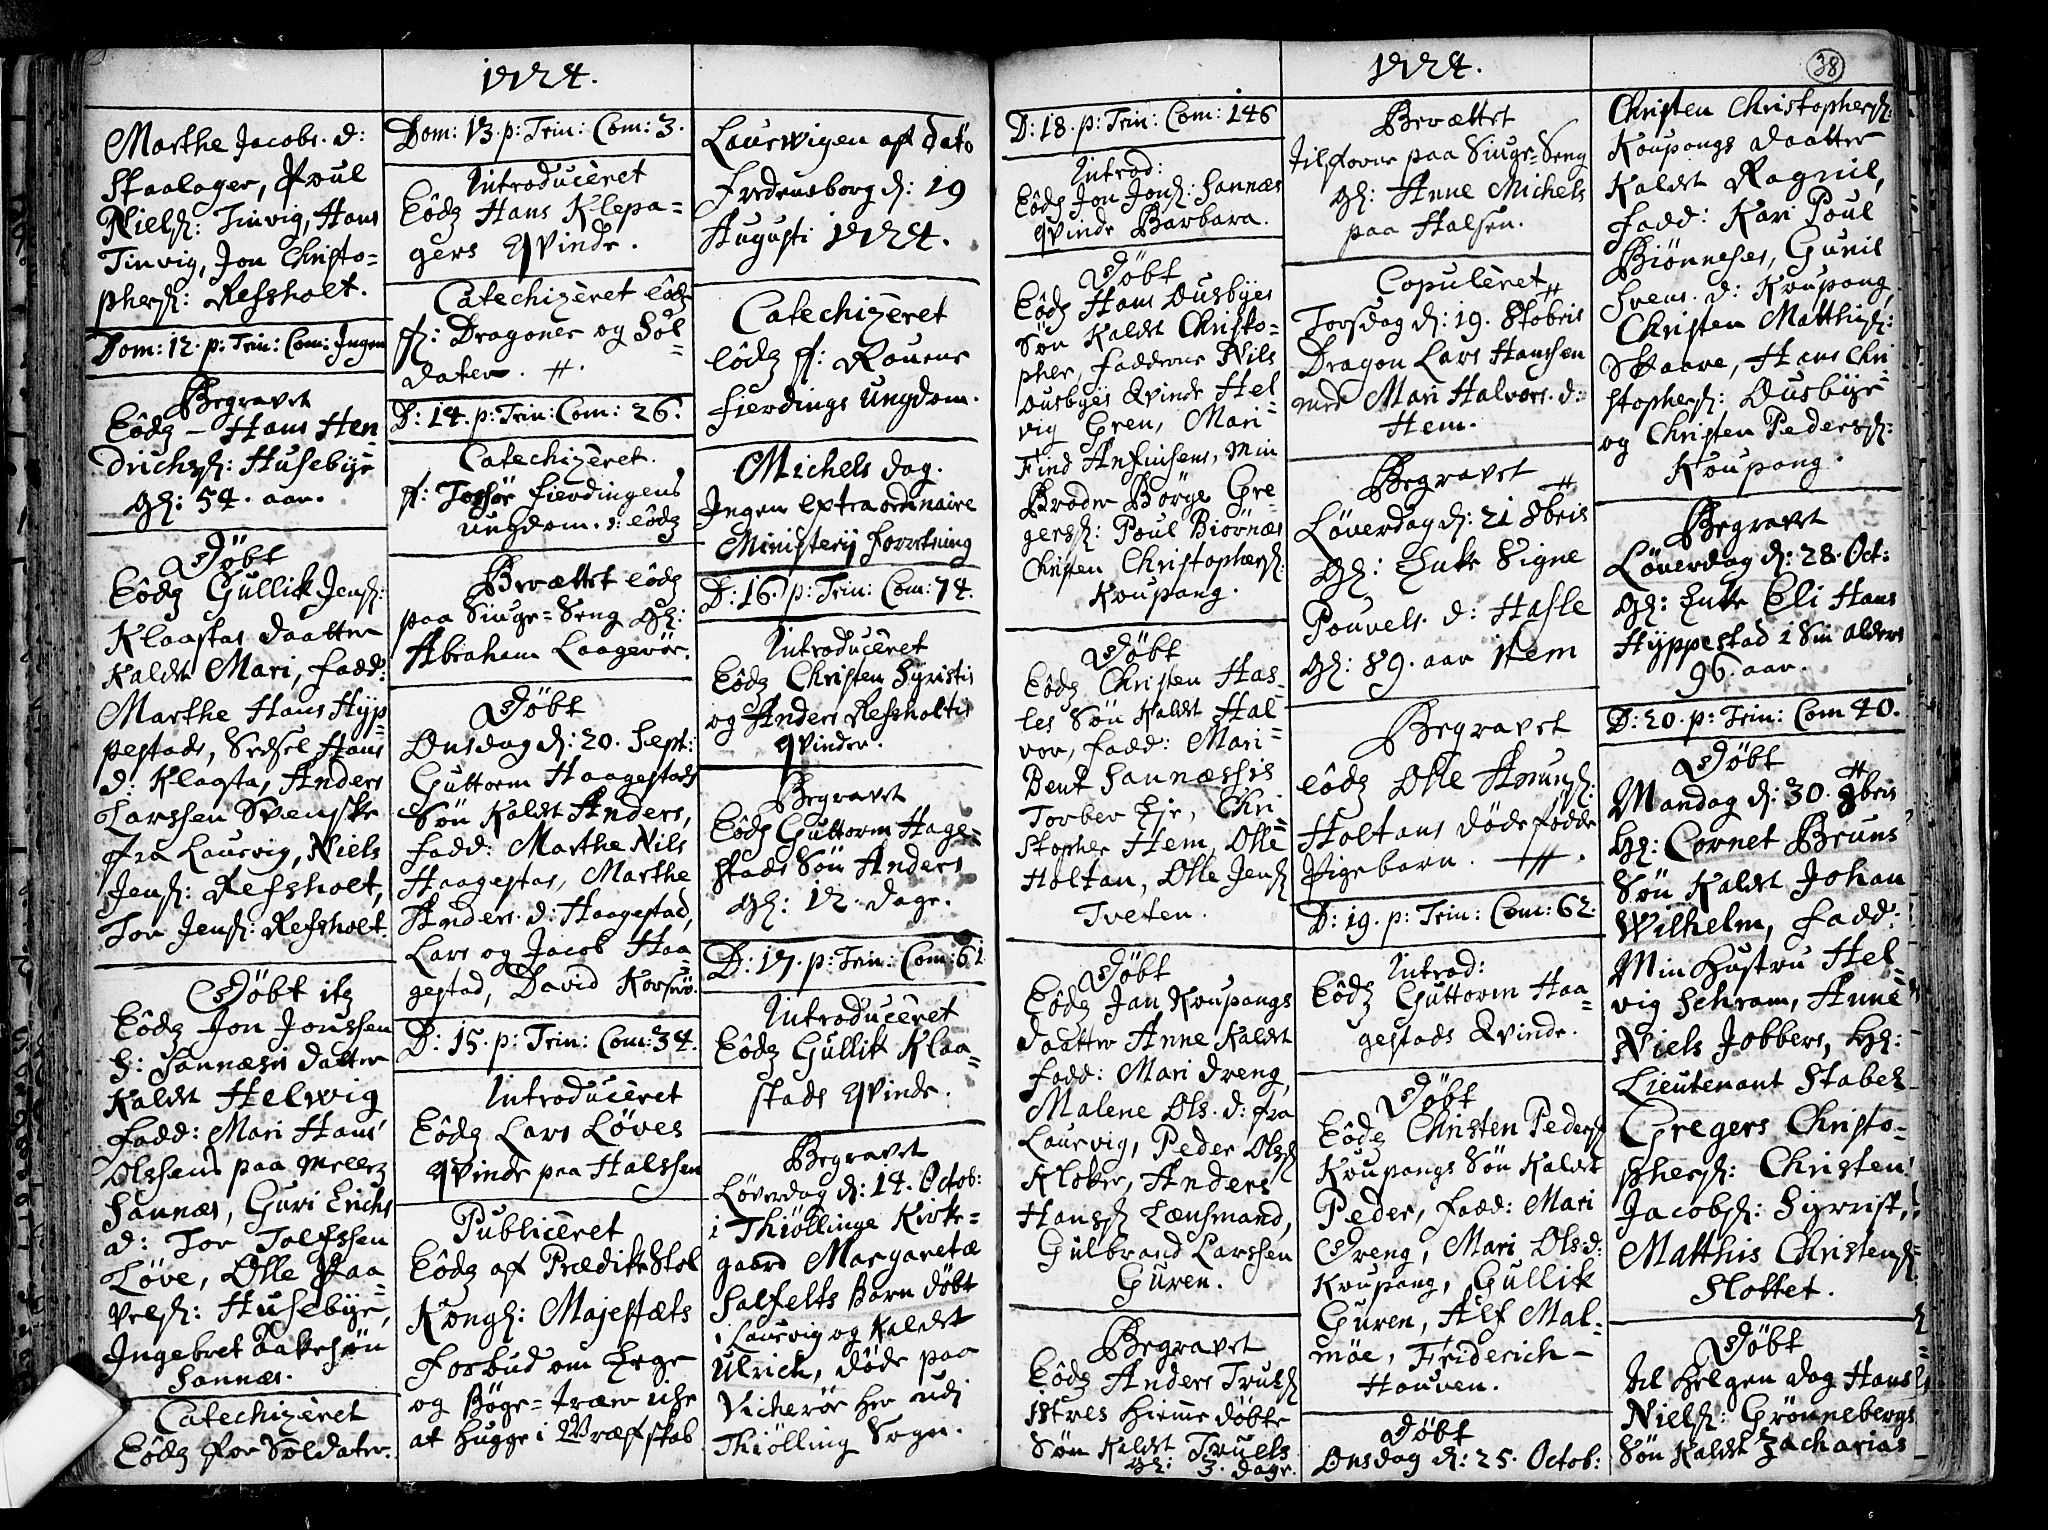 1724.
Marthe Jacobs. d:
Staalager, Poul
Nielss: Tinvig, Hans
Tinvig, Jon Christo-
phers: Refsholt.
Dom: 12. p: Trin: Com: Ingen
Begravet
Eôdg - Hans Hen-
drichss: Husebye
gl: 54. aar.
Döbt
Eôdg Gullik Jens:
Klaastas daatter
kaldt Mari, fadd:
Marthe Hans Hyp-
pestads, Sedsel Hans
d: Klagsta, Anders
Larssen Svenske
fra Laurvig, Niels
Jens: Refsholt,
Tor Jens: Refsholt.
Döbt itz
Eôdg Jon Jonssen
S: Sannæsis datter
kaldt Helwig
fadd: Mari Hans
Olssens paa
Sannæs, Guri Erichs
d: Tor Tolfssen
Löve, Olle Paa-
vels: Husebye,
Ingebret Bakesön
Sannæs.
Catechizêret
Eôdg for Soldater.
Dom: 13. p: Trin: Com: 3.
Introducêret
Eôdg Hans Klepa-
gers qvinde.
Catechizêret eôdg
ff: Dragoner og Sol-
dater.
D: 14. p: Trin: Com: 26.
Catechizêret.
ff: fierdingens
ungdom. eôdg
Berættet eôdg
paa Siuge-Seng gl:
Abraham Laagerör.
Döbt
Onsdag d: 20. Sept:
Guttorm Haagestads
Sön kaldt Anders,
fadd: Marthe Nils
Haagestas, Marthe
Anders. d: Haagestad,
Lars og Jacob Haa-
gestad, David Korsrö.
D: 15. p: Trin: Com: 34.
Introducêret
Eôdg Lars Löves
qvinde paa Halssen
Publicêret
Eôdg af PrædikeStol
Kongl: Majestæts
forbud om Eege
og Böge-træer icke
at hugge i Græfskab
Laurwigen af dato
Fredensborg d: 19
Augusti 1724.
Catechizêret
eôdg ff: Rauens
fierdings ungdom.
Michels dag.
Ingen extraordinaire
Ministerij forretning
D: 16. p: Trin: Com: 74.
Introducêret
Eôdg Christen Syristis
og Anders Refsholtis
qvinder.
Begravet
Eôdg Guttorm Hage-
stads Sön Anders
gl: 12. dage.
D: 17. p: Trin: Com: 61
Introducêret
Eôdg Gullik Klaa-
stads qvinde.
Begravet
Löverdag d: 14. Octob:
i Thiöllinge Kirke-
gaard Margaretæ
Salfelts Barn döbt
i Laurvig og kaldet
Ulrich, döde paa
Vicherör her udj
Thiölling Sogn.
1724.
38
D: 18. p: Trin: Com: 146
Introd:
Eôdg Jon Jons: Sannæs
qvinde Barbara.
Döbt
Eôdg Hans Ousbyes
Sön kaldt Christo-
pher, fadderne Nils
Ousbyes Qvinde Hel-
vig Gren, Mari
Find Anfinsens, min
Broder Börge Gre-
gerss: Poul Biörnæs
Christen Christophers:
Koupang.
Döbt
Eôdg Christen Has-
les Sön kaldt Hal-
vor, fadd: Mari
Bent Sannæssis
Torber Eje, Chri-
stopher Hem, Olle
Holtan, Olle Jens:
Tveten.
Döbt
Eôdg Jan Koupangs
daatter Anne kaldt
fadd: Mari dreng,
Malene Ols. d: fra
Laurvig, Peder Olss:
Kloker, Anders
Hanss: Lænsmand,
Gulbrand Larssen
Guren.
Begravet
Eôdg Anders Truls:
Istres hieme döbte
Sön kaldt Truels
gl: 3. dage.
Berættet
tilforne paa Siuge-Seng
gl: Anne Michels
paa Halsen.
Copulêret
Torsdag d: 19. 8tobris
Dragon Lars Hanssen
med Mari Halvors. d:
Hem.
Begravet
Löverdag d: 21 8bris
gl: Enke Signe
Pouvels. d: Hasle
gl: 89. aar item
Begravet
eôdg Olle Amunss:
Holtans dödefödde
Pigebarn.
D: 19. p: Trin: Com: 62.
Introd:
Eôdg Guttorm Haa-
gestads Qvinde.
Döbt
Eôdg Christen Peders:
Koupangs Sön kaldt
Peder, fadd: Mari
Dreng, Mari Ols. d:
Koupang, Gullik
Guren, Alf Mal-
möe, Friderich
Hauven.
Döbt
Onsdag d: 25. Octob:
Christen Christophers:
Koupangs daatter
kaldt Ragnil,
fadd: Kari Poul
Biönneses, Gunil
Svens. d: Koupang,
Christen Matthis:
Skaare, Hans Chri-
stophers: Ousbye
og Christen Pederss:
Koupang.
Begravet
Löverdag d: 28. Oct:
gl: Enke Eli Hans
Hyppestad i Sin alders
96. aar.
D: 20. p: Trin: Com 40.
Döbt
Mandag d: 30. 8bris
Hr: Cornet Bruns
Sön kaldt Johan
Wilhelm, fadd:
Min Hustru Hel-
vig Schram, Anne
Niels Jobbers, Hr:
Lieutenant Stabel
Gregers Christo-
phers: Christen
Jacobs: Syrrist,
Matthis Christens:
Slottet.
Döbt
til Helgen dag Hans
Niels: Grönnebergs
Sön kaldt Zacharias